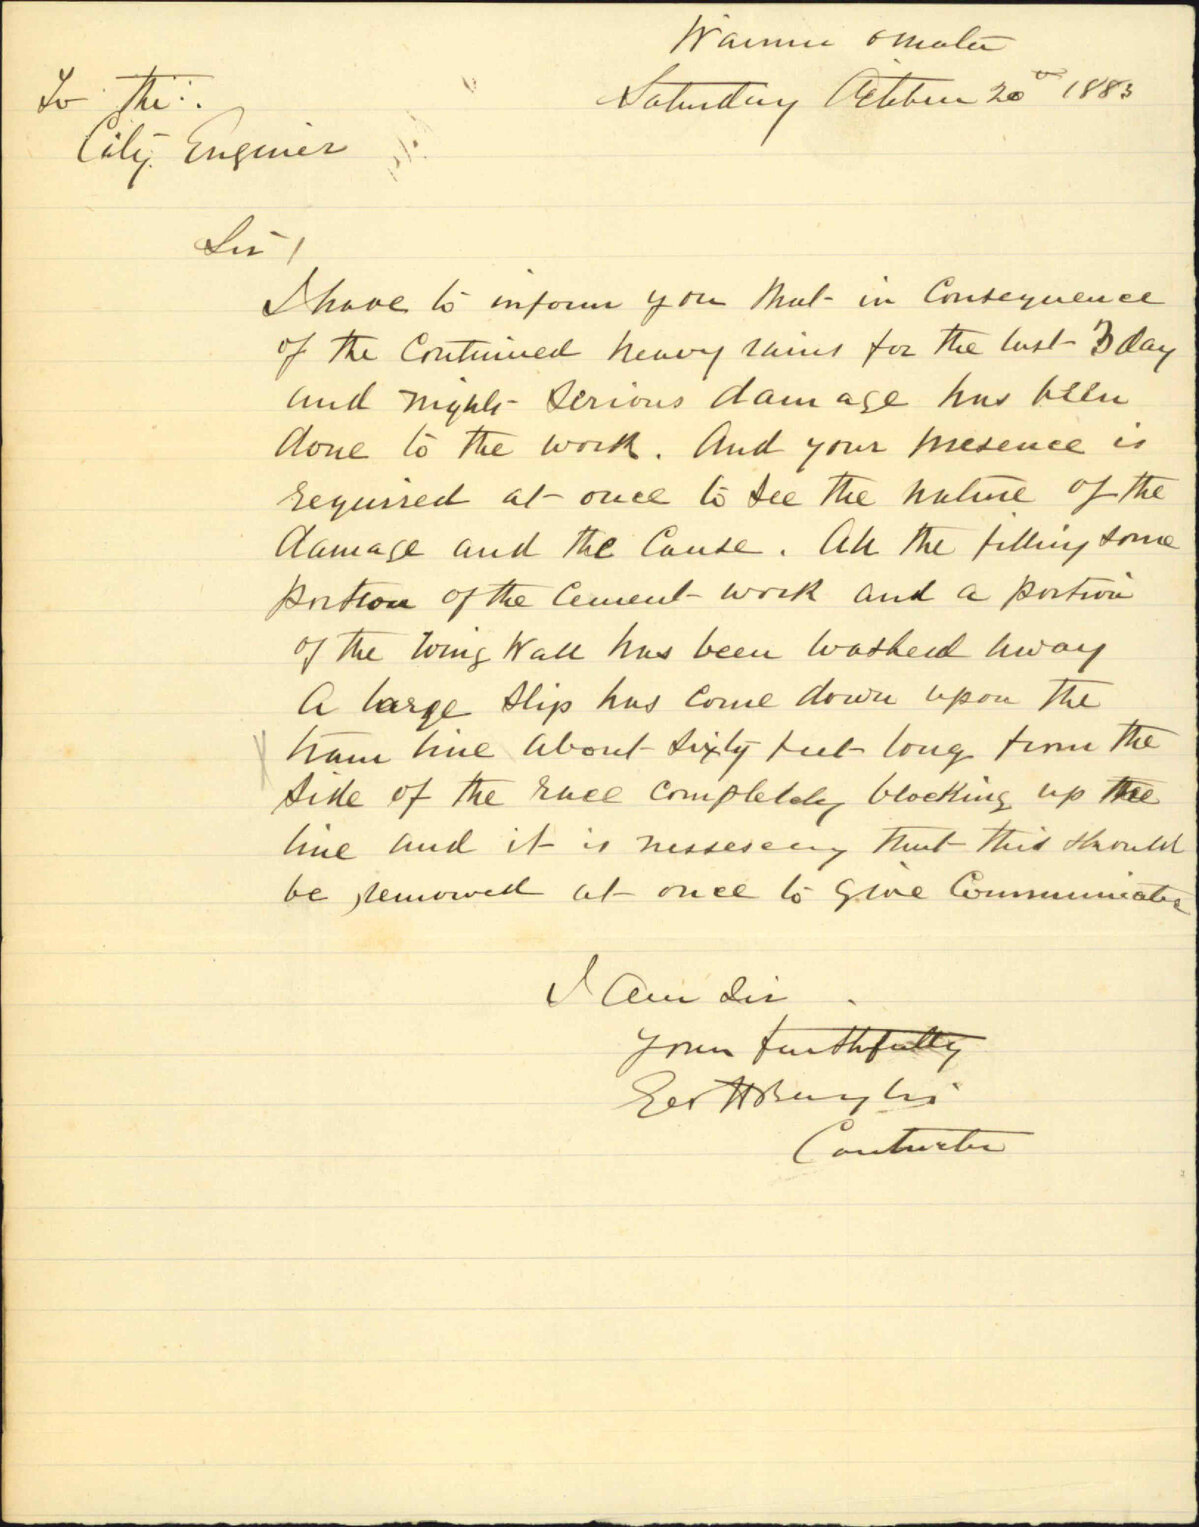 Wainui omata
Saturday October 20th 1883
To the
City Enginer
Sir /
I have to inform you that in Consequence
of the Continued heavy rains for the last 3 day
and nights serious damage has been
done to the work. And your presence is
required at once to see the nature of the
damage and the Cause. All the filling some
portion of the Cement work and a portion
of the Wing Wall has been washed away
A large slip has come down upon the
tram line About sixty feet long from the
side of the race completely blocking up the
line and it is nessesery that this should
be removed at once to give Communicatin
I Am Sir
Your faithfully
Geo H
Contractor